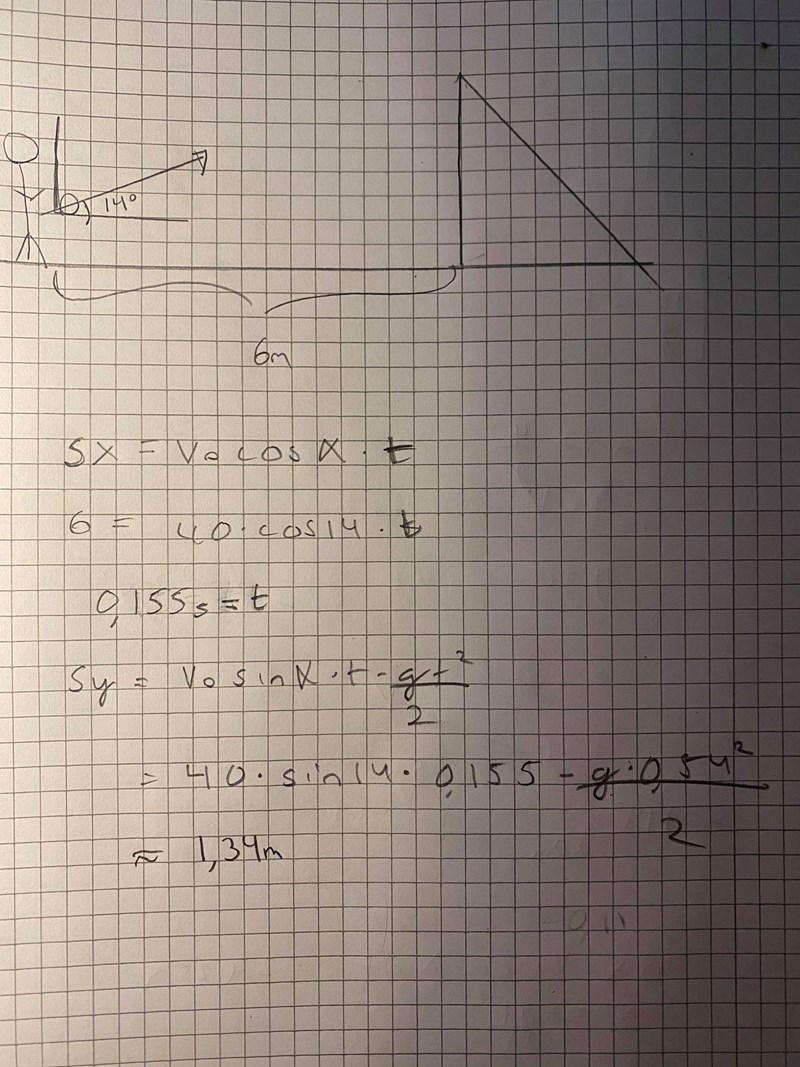 14°
6m
Sx = V₀ cos α · t
6 = 40 · cos14 · t
0,155s = t
Sy = V₀ sin α · t - gt²/2
= 40 · sin14 · 0,155 - g · 0,54²/2
≈ 1,34m